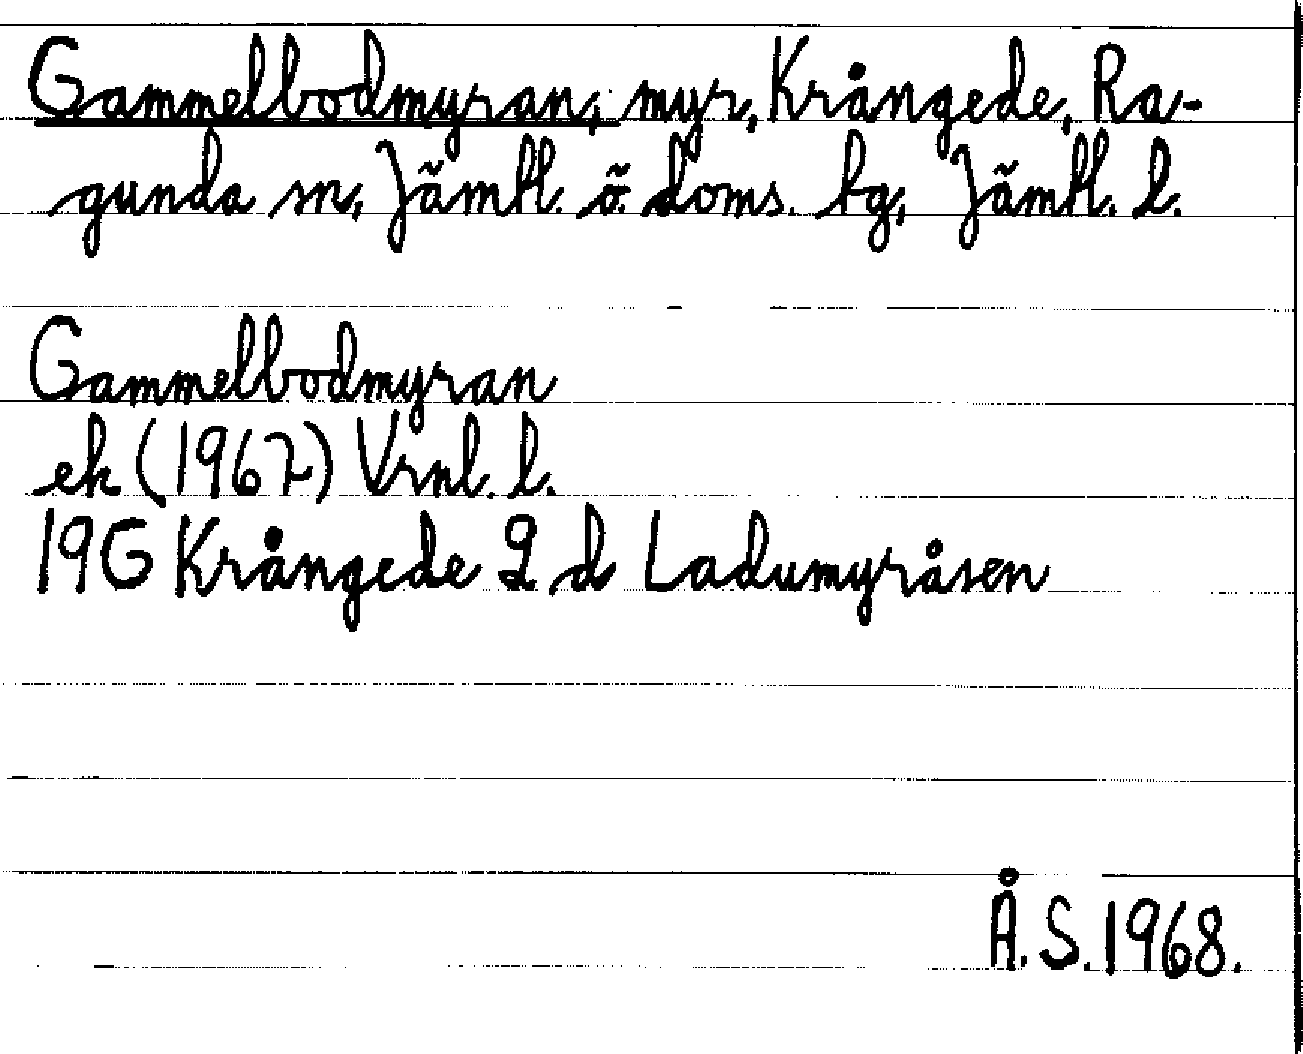 Gammelbodmyran, myr, Krångede, Ra-
gunda sn, Jämtl. ö. doms. tg, Jämtl. l.
Gammelbodmyran
ek (1967) Vrnl. l.
19G Krångede 2 d Ladumyråsen
Å.S.1968.